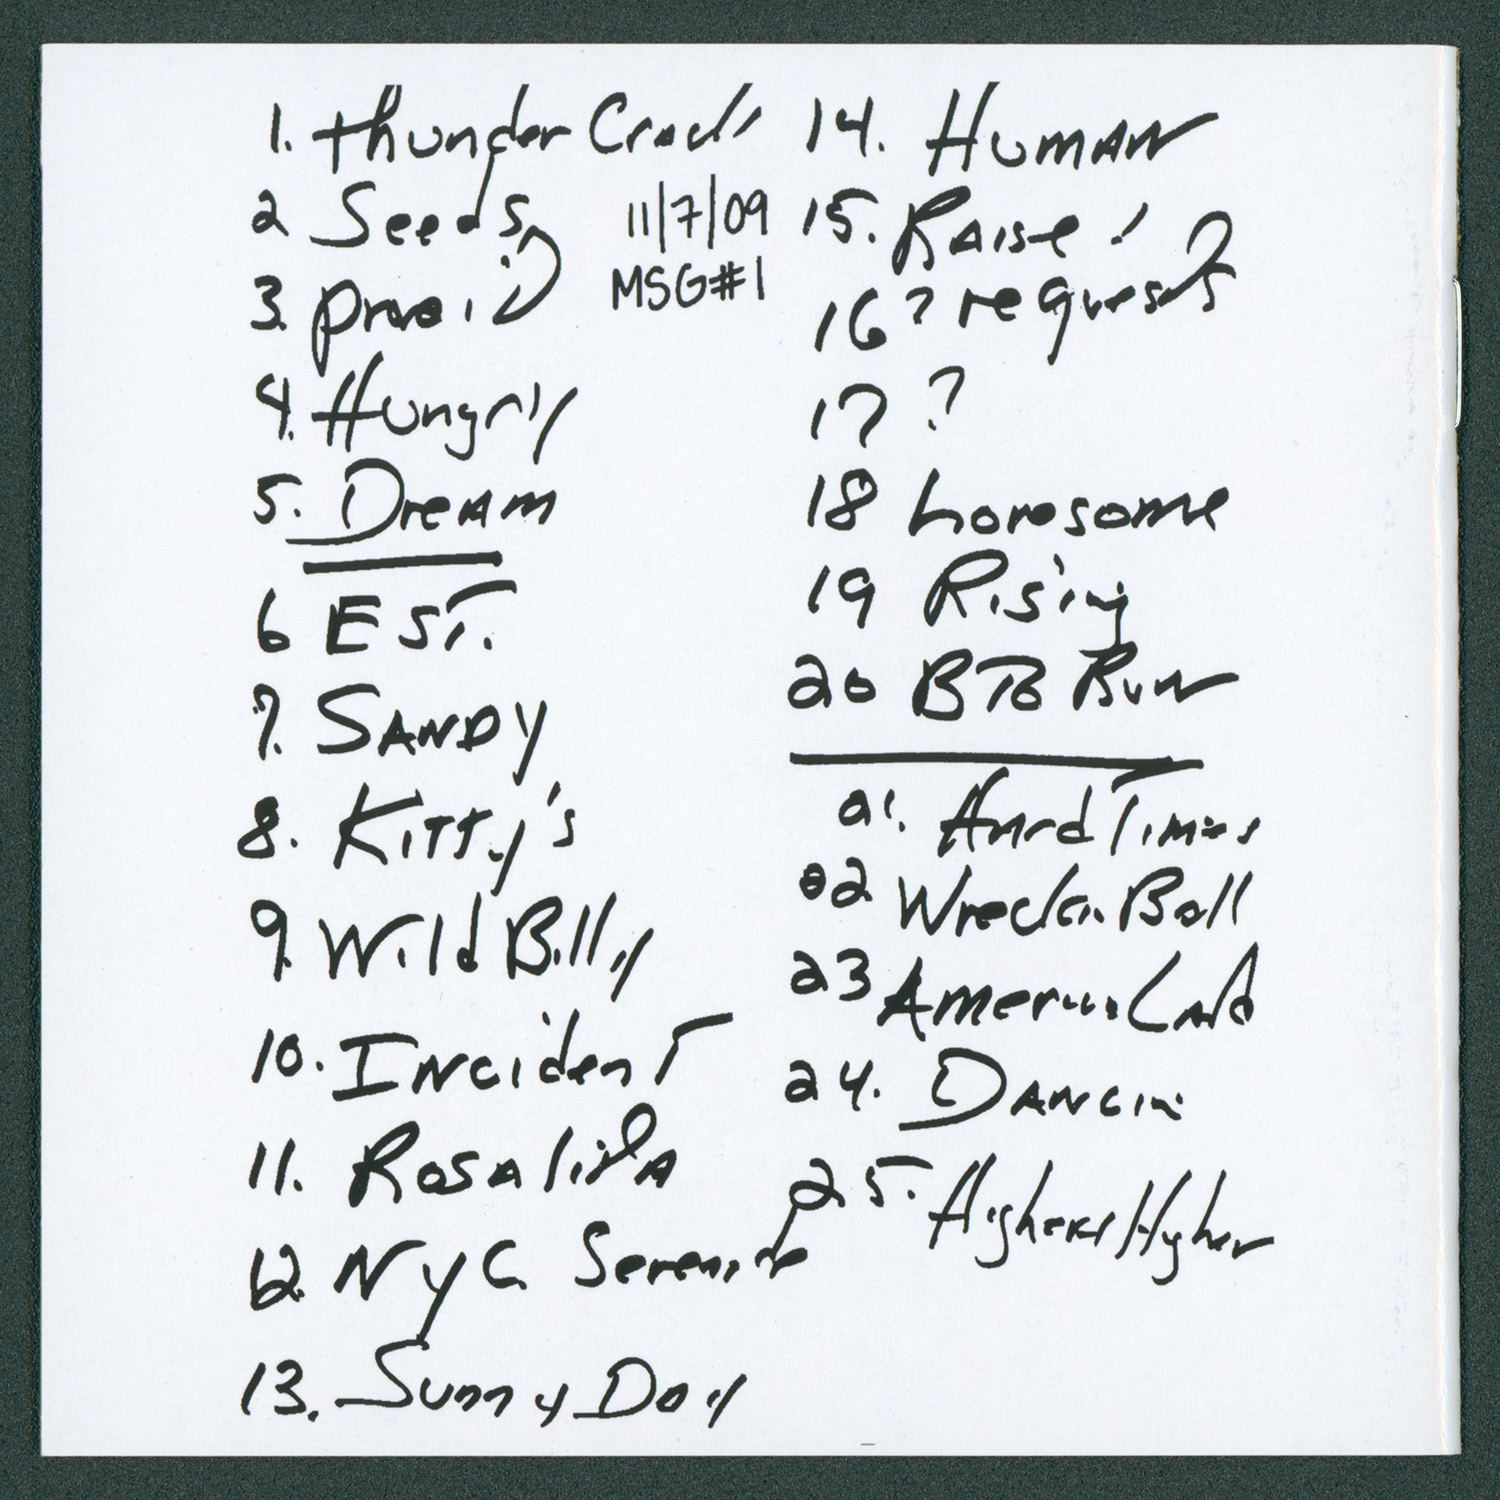 1. Thunder Crack
2 Seeds
11/7/09
MSG#1
3. Prove it
4. Hungry
5. Dream
6 E ST.
7. SANDY
8. KITTy's
9. Wild Billy
10. INcidenT
11. ROSAlitA
12. NyC Serenade
13. Sunny Day
14. HUMAN
15. RAise !
16 ? requests
17 ?
18 Lonesome
19 Rising
20 BTO RUN
21. Hard Times
22 Wreckin Ball
23 American Land
24. DANCIN
25. Higher Higher